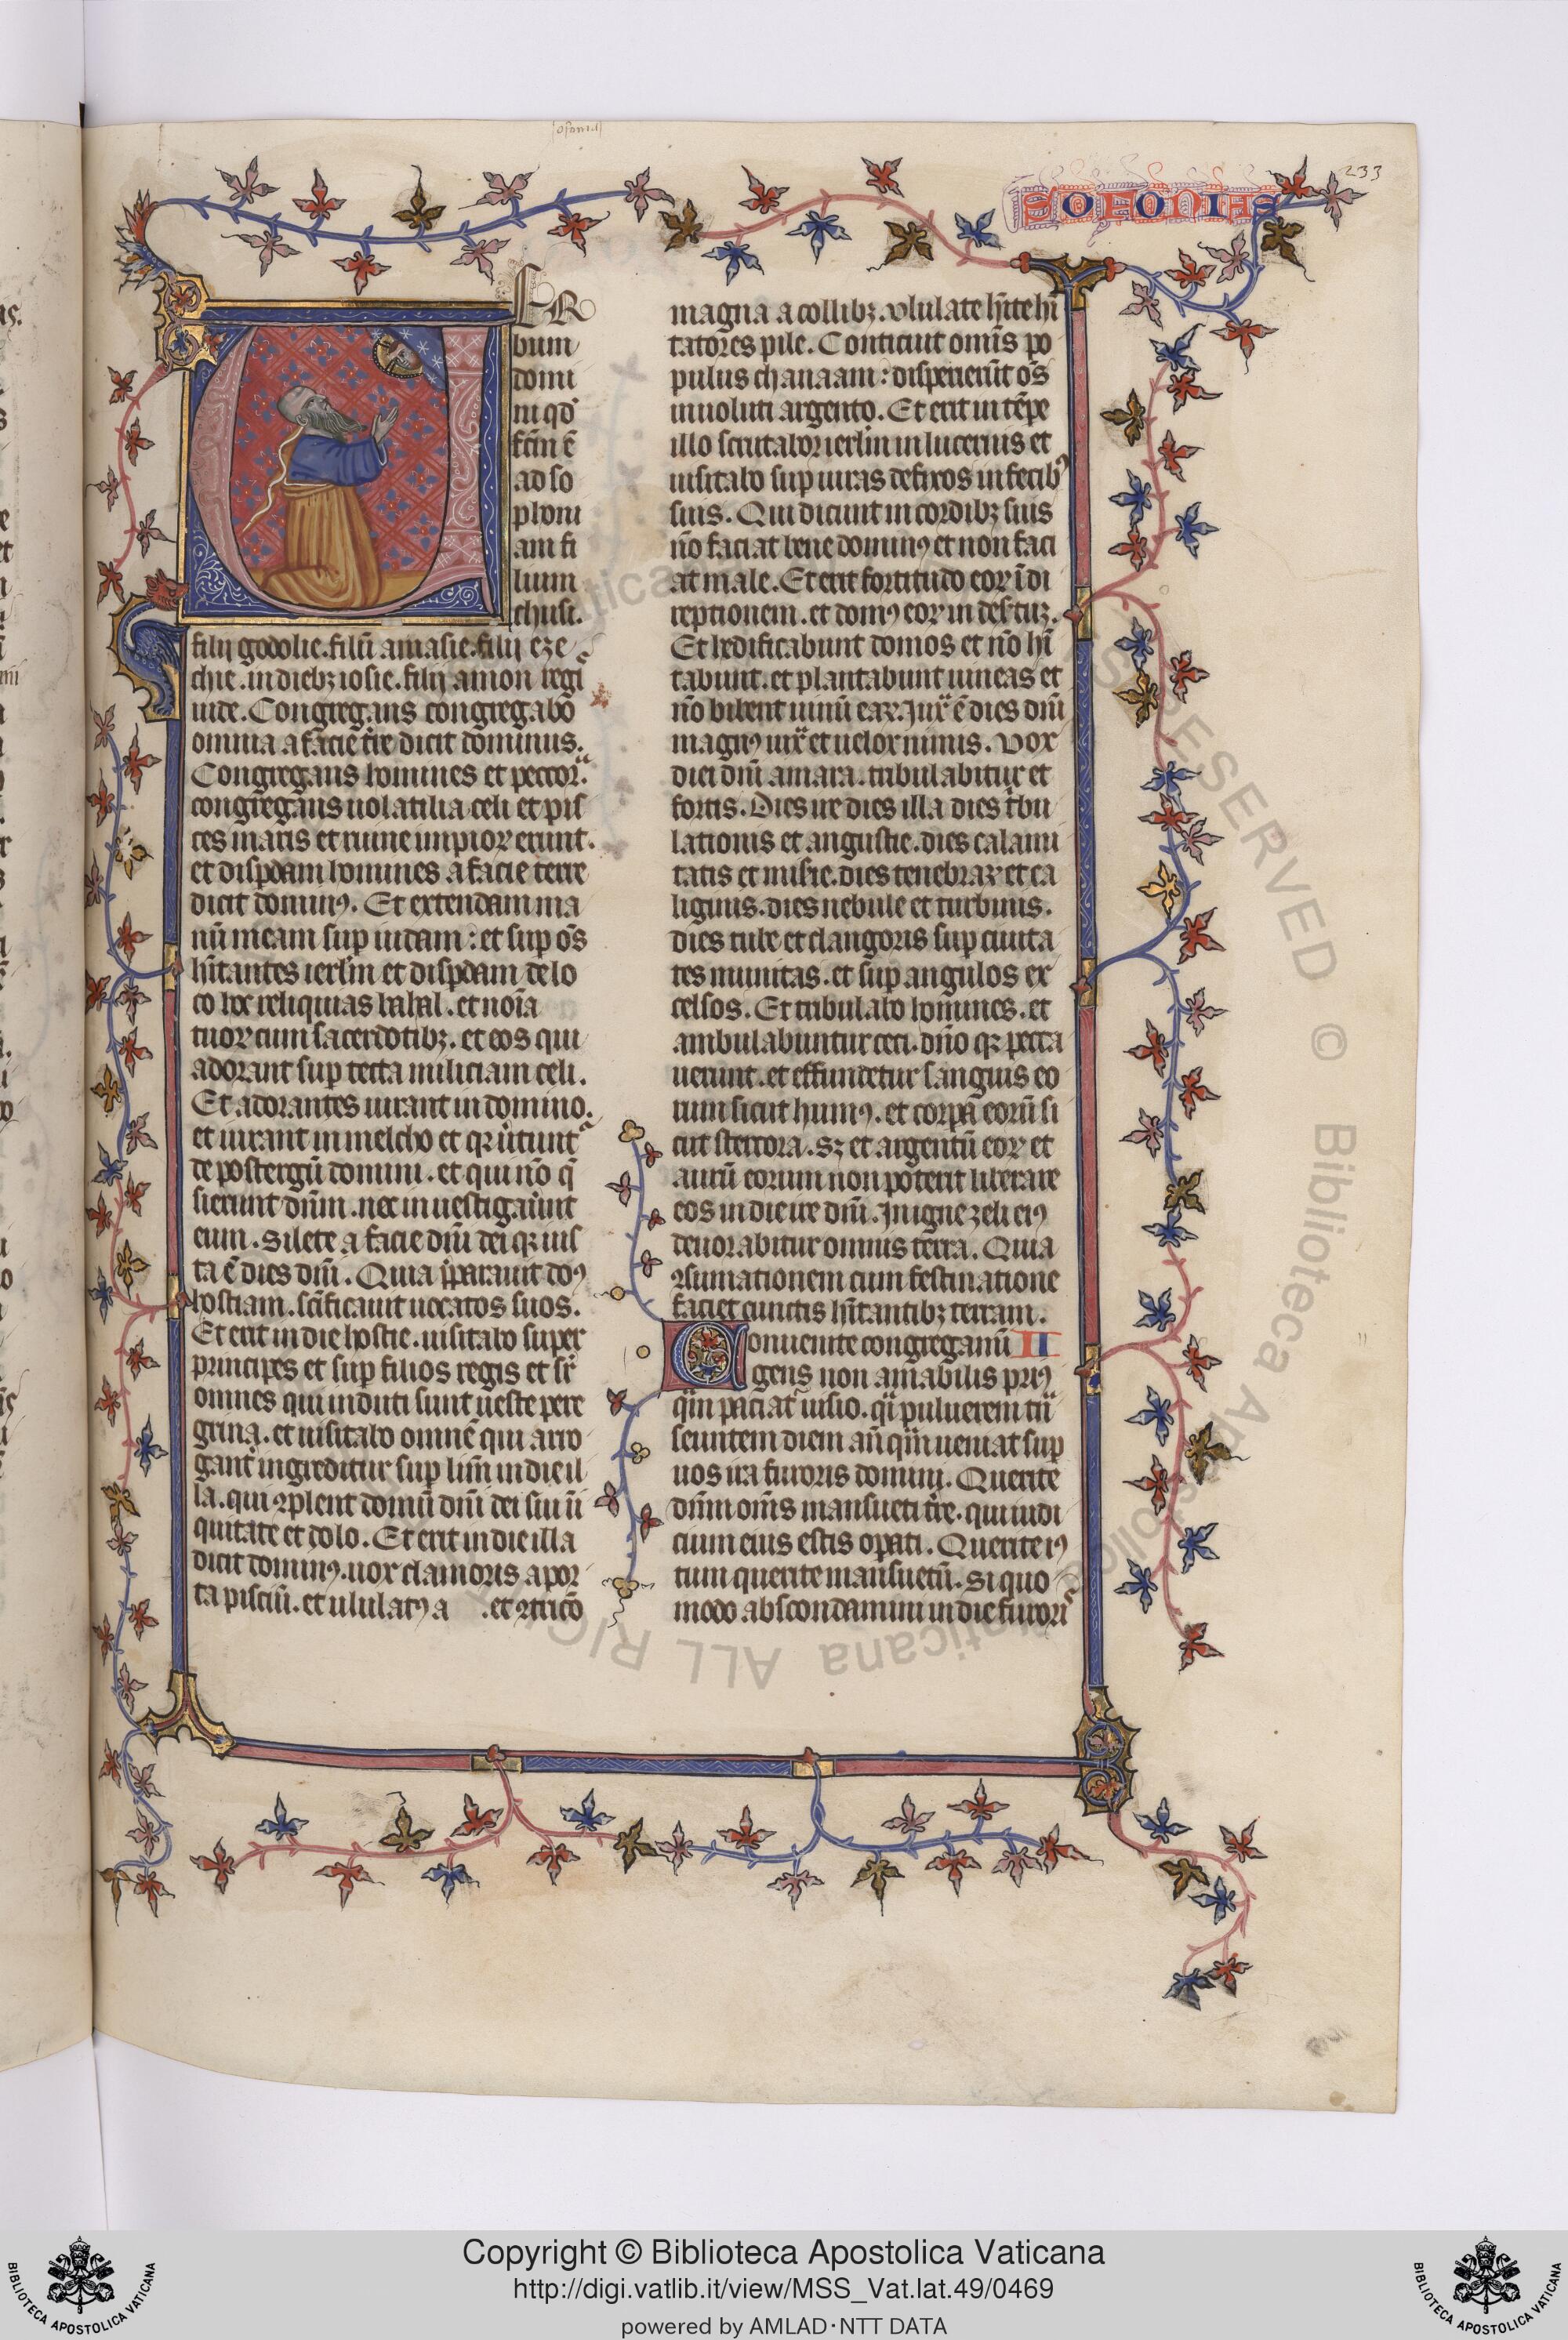 sofonias
233
SOFONIAS
VER
bum
domi
ni qd̄
fc̄m ē
ad so
phoni
am fi
lium
chusi.
filij godolie. filii amasie. filij eze
chie. in diebꝫ iosie. filij amon regis
iude. Congregans congregabo
omnia a facie tr̄e dicit dominus.
Congregans homines et peccora.
congregans uolatilia celi et pis
ces maris et ruine impioꝝ erunt.
et disperdam homines a facie terre
dicit dominꝰ. Et extendam ma
nū meam sup iudam: et sup oēs
hītantes ierlm̄ et disperdam de lo
co hoc reliquias bahal. et noīa
tuoꝝ cum sacerdotibꝫ. et eos qui
adorant sup tecta miliciam celi.
Et adorantes iurant in domino.
et iurant in melcho et qꝛ ūtunt
de postergū domini. et qui nō q̄
sierunt dn̄m. nec inuestigauīt
eum. Silete a facie dn̄i dei qꝛ iux
ta ē dies dn̄i. Quia p̄parauit doꝰ
hostiam. sc̄ificauit uocatos suos.
Et erit in die hostie. uisitabo super
principes et sup filios regis et sr̄
omnes qui induti sunt ueste pere
grina. et uisitabo omnē qui arro
gant̄ ingreditur sup lim̄ in die il
la. qui ꝯplent domū dn̄i dei sui ī
quitate et dolo. Et erit in die illa
dicit dominꝰ. uox clamoris a por
ta pisciū. et ululatꝰ a . et ꝯtricō
magna a collibꝫ. vlulate hīte hī
tatores pile. Conticuit omīs po
pulus chanaam: disperierūt oēs
inuoluti argento. Et erit in tēpe
illo scrutabor ierlm̄ in lucernis et
uisitabo sup uiros defixos in fecibꝰ
suis. Qui dicunt in cordibꝫ suis
nō faciat bene dominꝰ et non faci
at male. Et erit fortitudo eoꝝ ī di
reptionem. et domꝰ eoꝝ in des̄tuꝫ.
Et hedificabunt domos et nō hī
tabunt. et plantabunt uineas et
nō bibent uinū eaꝝ. Iuxͣ ē dies dn̄i
magnꝰ iuxͣ et uelox nimis. Vox
diei dn̄i amara. tribulabitur et
fortis. Dies ire dies illa dies t̄bu
lationis et angustie. dies calami
tatis et misīe. dies tenebraꝝ et ca
liginis. dies nebule et turbinis.
dies tube et clangoris sup ciuita
tes munitas. et sup angulos ex
celsos. Et tribulabo homines. et
ambulabuntur ceci. dn̄o qꝛ pecca
uerunt. et effundetur sanguis eo
rum sicut humꝰ. et corpa eorū si
cut stercora. Sꝫ et argentū eoꝝ et
aurū eorum non poterit liberare
eos in die ire dn̄i. In igne zeli eiꝰ
deuorabitur omnis terra. Quia
ꝯsumationem cum festinatione
faciet cunctis hītantibꝫ terram.
Conuenite congregamī II
gens non amabilis priꝰ
qm̄ pariat̄ uisio. qͣi puluerem tͣn
seuntem diem an̄ qͣm ueniat sup
uos ira furoris domini. Querite
dn̄m om̄s mansueti tr̄e. qui iudi
cium eius estis opati. Querite iꝰ
tum querite mansuetū. Si quo
modo abscondamini in die furoris
Copyright © Biblioteca Apostolica Vaticana
http://digi.vatlib.it/view/MSS_Vat.lat.49/0469
powered by AMLAD·NTT DATA
BIBLIOTECA APOSTOLICA VATICANA
BIBLIOTECA APOSTOLICA VATICANA